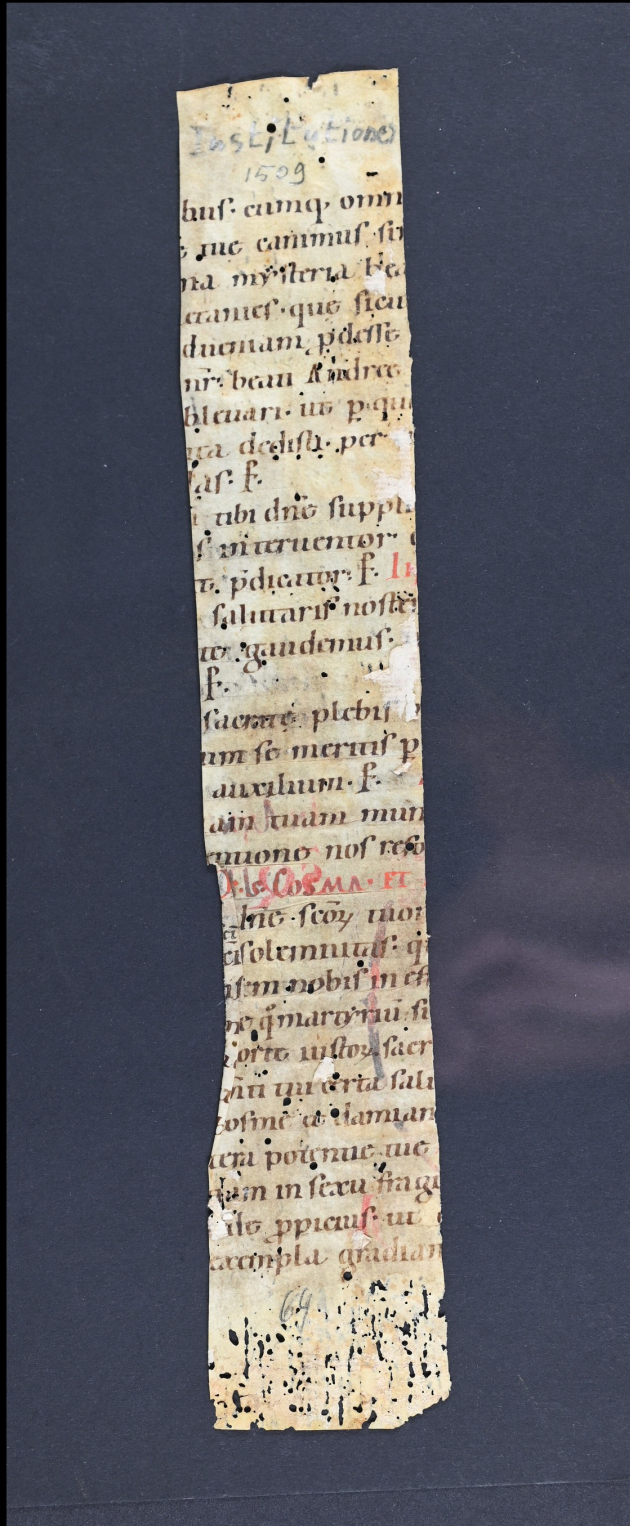 Institutiones
1509
bus· eumq; omn
tue canimus· sin
na mysteria bea
ctamus· que sicu
dueniam p̄desse
nr̄i beati Andree
bleuari· ut p qu
ita dedisti· per
las· f.
tibi dn̄e suppli
s interuentor·
t· p̄dicator· f. In
salutaris nostri
te gaudemus·
f.
sacrate plebis
um se meritis p
auxilium· f.
am tuam mun
nos refo
COSMA· ET
dn̄e scōꝝ tuoꝝ
solemnitas· q
nobis in
q̄ martyriū si
iustoꝝ sacr
certa salu
cosme et damian
tera potentie tue
in sexu fragi
ppicius· ut
exempla gradian
64